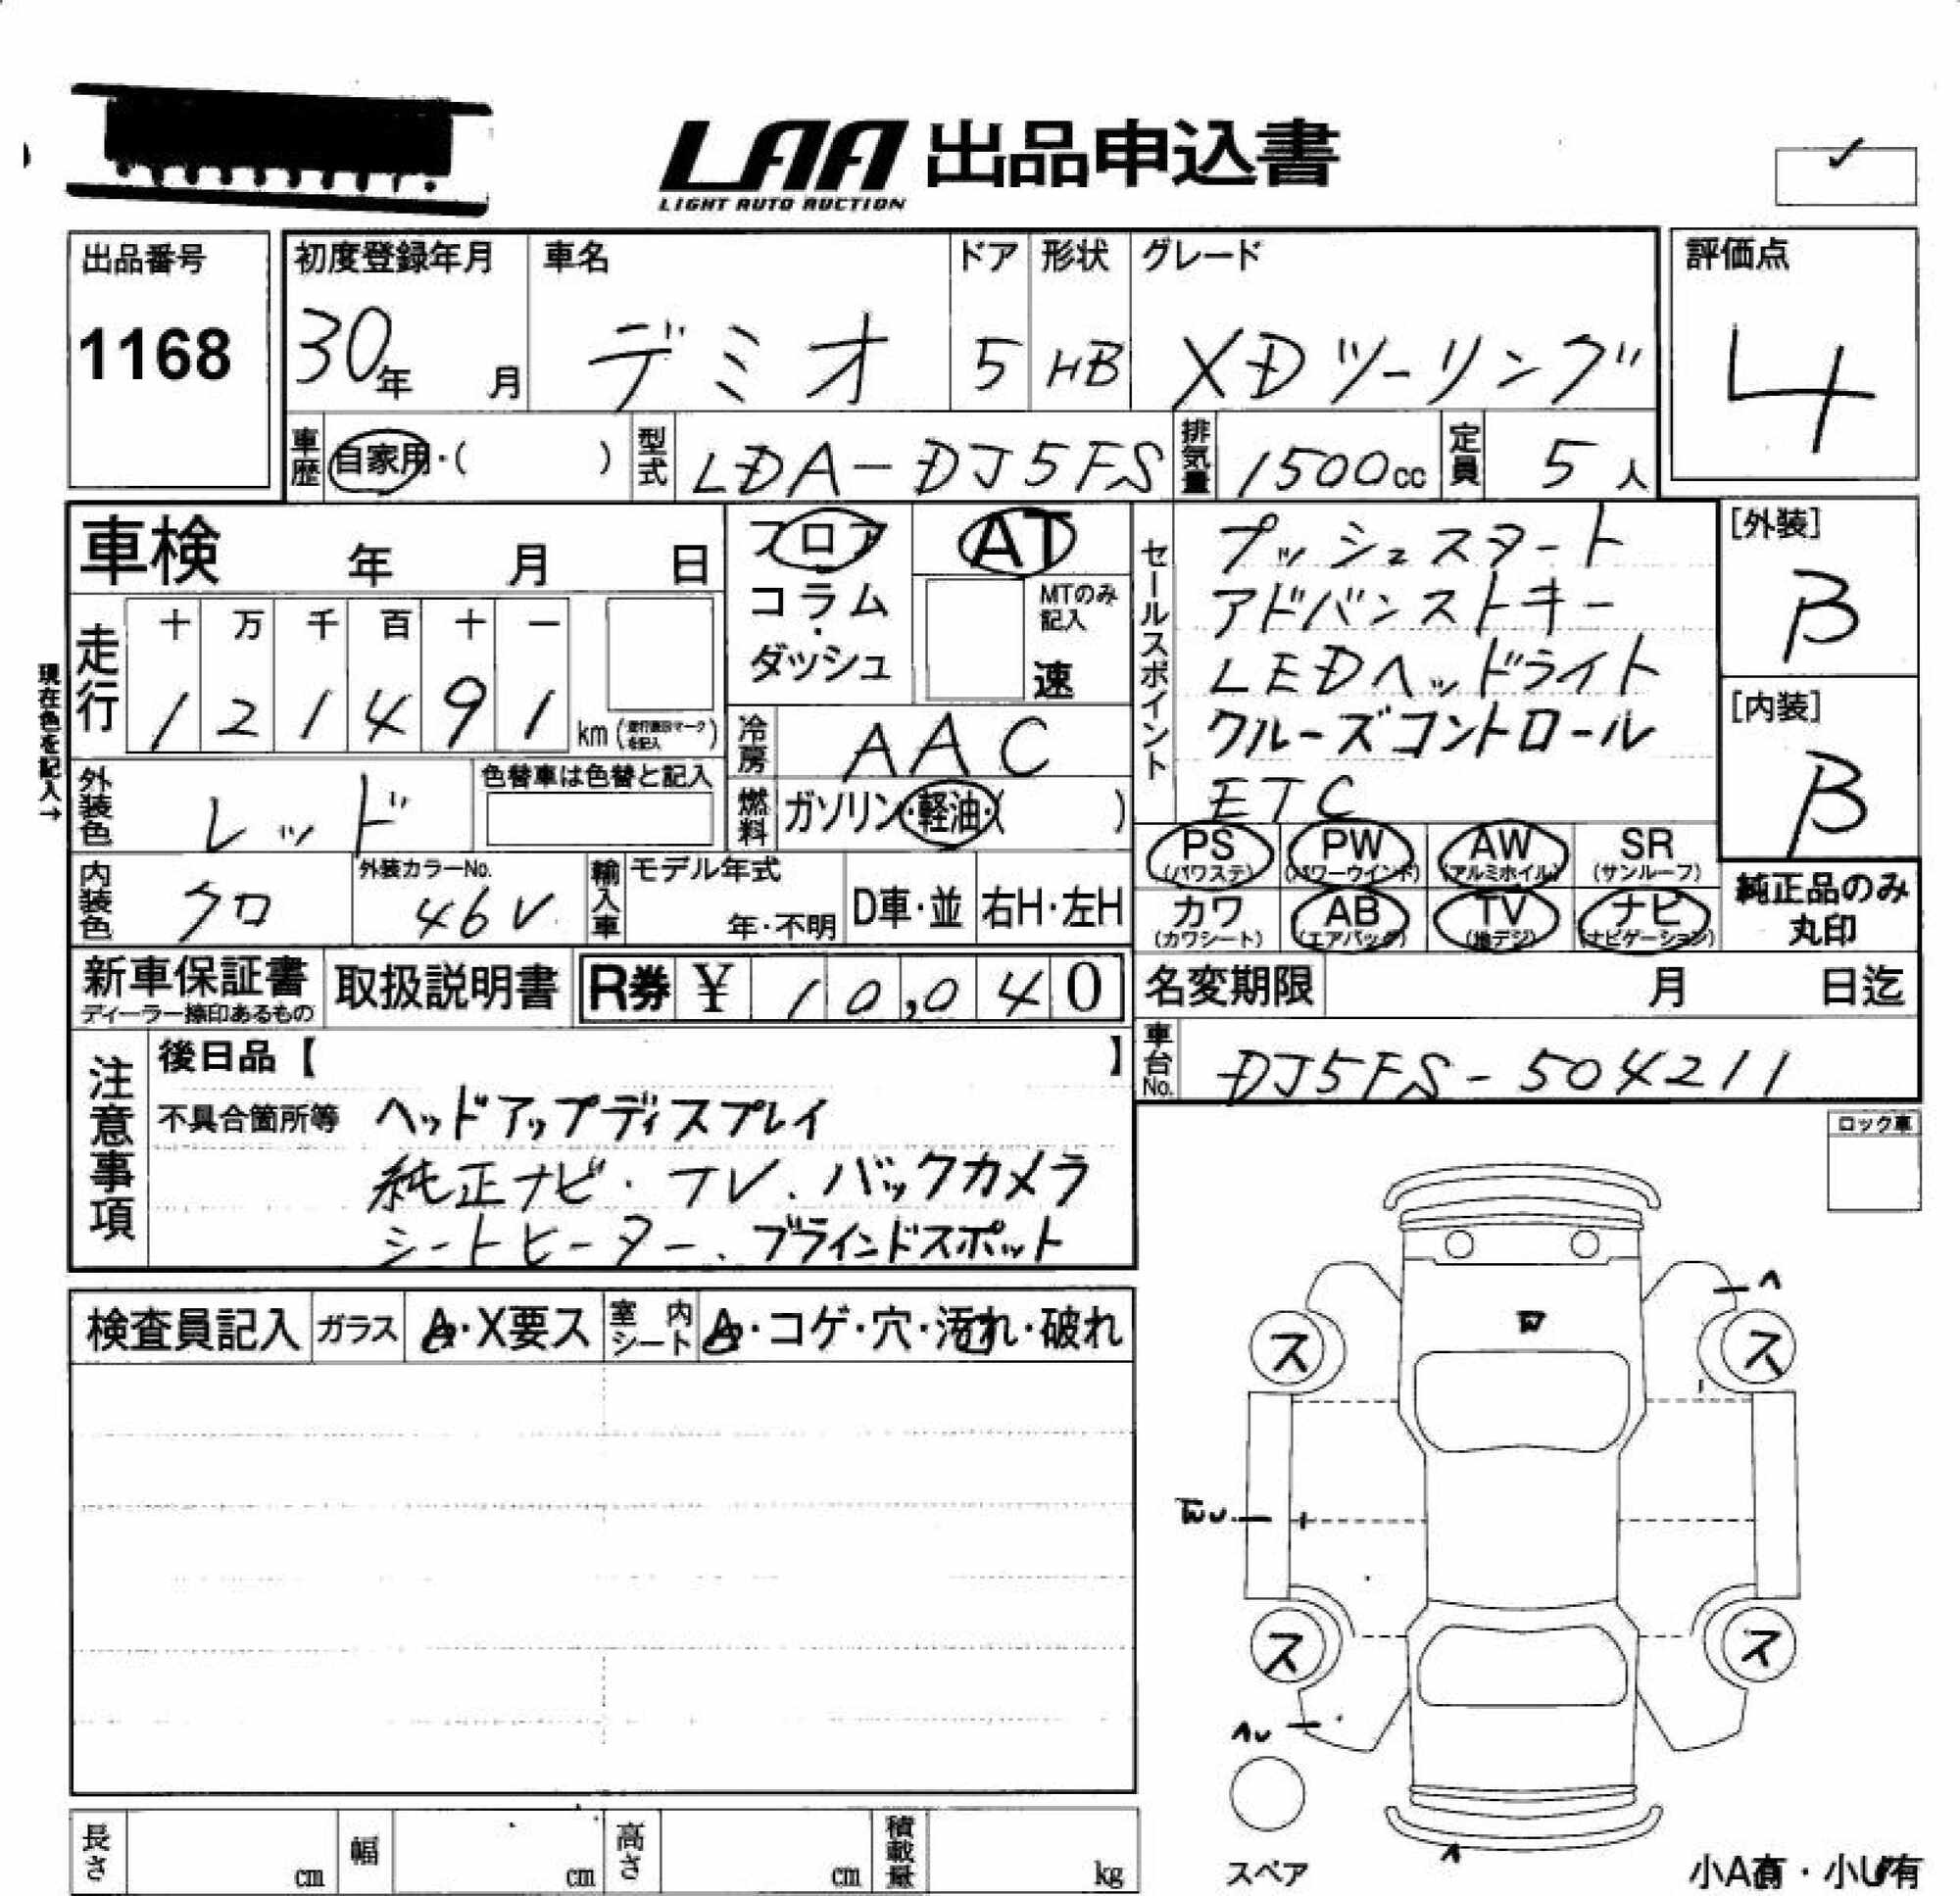 LAA 出品申込書
LIGHT AUTO AUCTION
出品番号
1168
初度登録年月
30年 月
車名
デミオ
ドア
5
形状
HB
グレード
XDツーリング
評価点
4
車歴 自家用・( )
型式 LDA-DJ5FS
排気量 1500cc
定員 5人
車検 年 月 日
フロア
コラム
・
ダッシュ
AT
MTのみ
記入
速
セールスポイント
プッシュスタート
アドバンストキー
LEDヘッドライト
クルーズコントロール
ETC
[外装]
B
[内装]
B
現在色を記入→
走行
十 万 千 百 十 一
1 2 1 4 9 1 km
冷房 AAC
燃料 ガソリン・軽油・( )
外装色 レッド
色替車は色替と記入
内装色 クロ
外装カラーNo.
46V
輸入車
モデル年式
年・不明
D車・並
右H・左H
PS
(パワステ)
PW
(パワーウインド)
AW
(アルミホイル)
SR
(サンルーフ)
カワ
(カワシート)
AB
(エアバック)
TV
(地デジ)
ナビ
(ナビゲーション)
純正品のみ
丸印
新車保証書
ディーラー捺印あるもの
取扱説明書
R券 ¥ 10,040
名変期限 月 日迄
車台No. DJ5FS-504211
注意事項
後日品【 】
不具合箇所等 ヘッドアップディスプレイ
純正ナビ・TV、バックカメラ
シートヒーター、ブラインドスポット
ロック車
検査員記入
ガラス A・X要ス
室内シート A・コゲ・穴・汚れ・破れ
A
ス ス
ス ス
スペア
A
小A有・小U有
長さ cm
幅 cm
高さ cm
積載量 kg